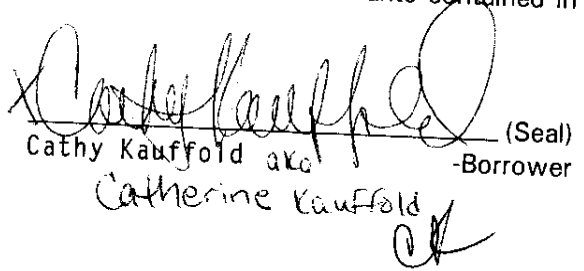 contained in
x Cathy Kauffold (Seal)
Cathy Kauffold aka -Borrower
Catherine Kauffold
CK